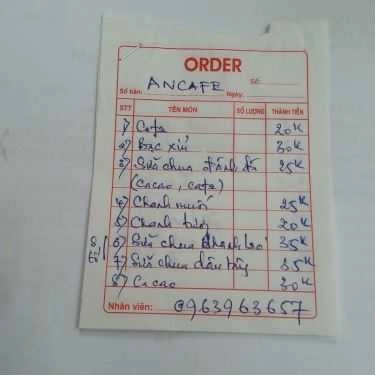 ORDER
Số:
Số bàn: ANCAFE Ngày:
STT TÊN MÓN SỐ LƯỢNG THÀNH TIỀN
1) Cafe 20K
2) Bạc xỉu 30K
3) Sữa chua đánh đá 35K
(cacao, cafe)
4) Chanh muối 25K
5) Chanh tươi 20K
6) Sữa chua chanh leo 35K
7) Sữa chua dâu tây 35K
8) Cacao 30K
Nhân viên: 0963963657